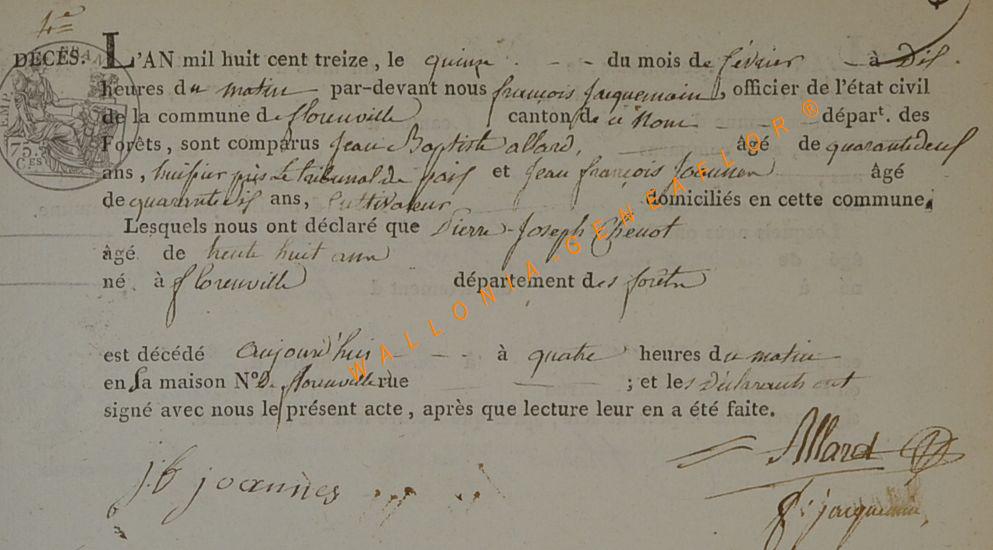 4e
DÉCÈS. L'AN mil huit cent treize, le quinze - - du mois de février - à Dix
heures du matin par-devant nous françois Jacquemain, officier de l'état civil
de la commune de florenville canton de ce Nom départ. des
Forêts, sont comparus Jean Baptiste allard, âgé de quarante deux
ans, huissier près le tribunal de paix et Jean françois âgé
de quarante dix ans, Cultivateur domiciliés en cette commune.
Lesquels nous ont déclaré que Pierre-Joseph Chenot
âgé de trente huit ans
né à florenville département des forêts
est décédé aujourd'huis - - à quatre heures du matin
en la maison N° De florenville rue ; et les déclarants ont
signé avec nous le présent acte, après que lecture leur en a été faite.
Allard
j.b joannès
f. jacquemain
WALLONIA-GENEAFLOR®